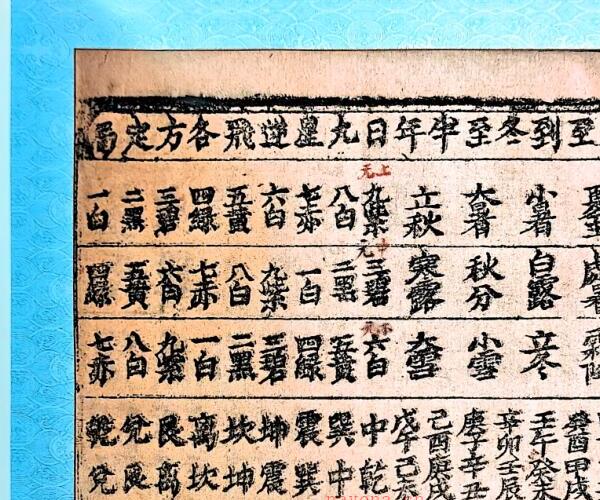 至到冬至半年日九星逆飛各方定局
小暑 大暑 立秋 上元 九紫 八白 七赤 六白 五黃 四綠 三碧 二黑 一白
處暑 白露 秋分 寒露 中元 三碧 二黑 一白 九紫 八白 七赤 六白 五黃 四綠
霜降 立冬 小雪 大雪 下元 六白 五黃 四綠 三碧 二黑 一白 九紫 八白 七赤
癸酉 壬午 辛卯 庚子 己酉 戊午 中 巽 震 坤 坎 離 艮 兌 乾
甲戌 癸未 壬辰 辛丑 庚戌 己未 乾 中 巽 震 坤 坎 離 艮 兌